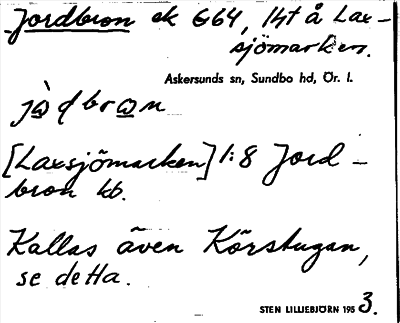 Jordbron ek G64, 1ht å Lax-
sjömarken.
Askersunds sn, Sundbo hd, Ör. l.
[Laxsjömarken] 1:8 Jord-
bron kb.
Kallas även Körstugan,
se detta.
STEN LILLIEBJÖRN 1953.